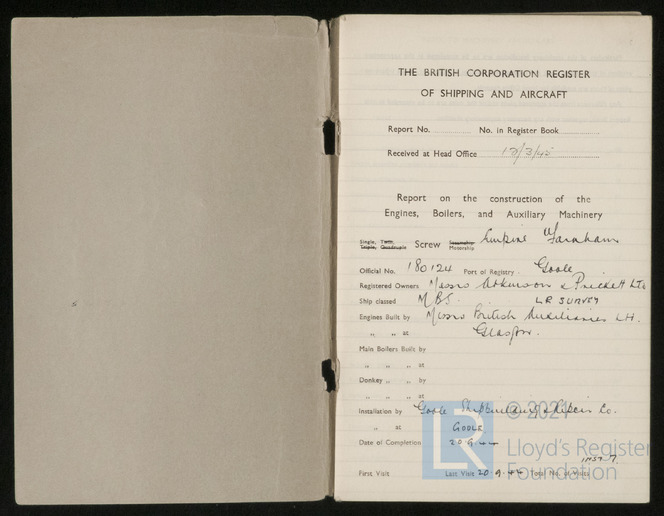 THE BRITISH CORPORATION REGISTER
OF SHIPPING AND AIRCRAFT
Report No. No. in Register Book
Received at Head Office 12/3/45
Report on the construction of the
Engines, Boilers, and Auxiliary Machinery
Single, Twin, Triple, Quadruple Screw Steamship Motorship Empire Farnham
Official No. 180124 Port of Registry Goole
Registered Owners Messrs Atkinson & Prickett Ltd
Ship classed MBS. LR SURVEY
Engines Built by Messrs British Auxiliaries Ltd.
" " at Glasgow.
Main Boilers Built by
" " " at
Donkey " " by
" " " at
Installation by Goole Shipbuilding & Repairs Co.
" at GOOLE
Date of Completion 20.9.44
INST. 7.
First Visit Last Visit 20.9.44 Total No. of Visits
© 2021
LR
Lloyd's Register
Foundation